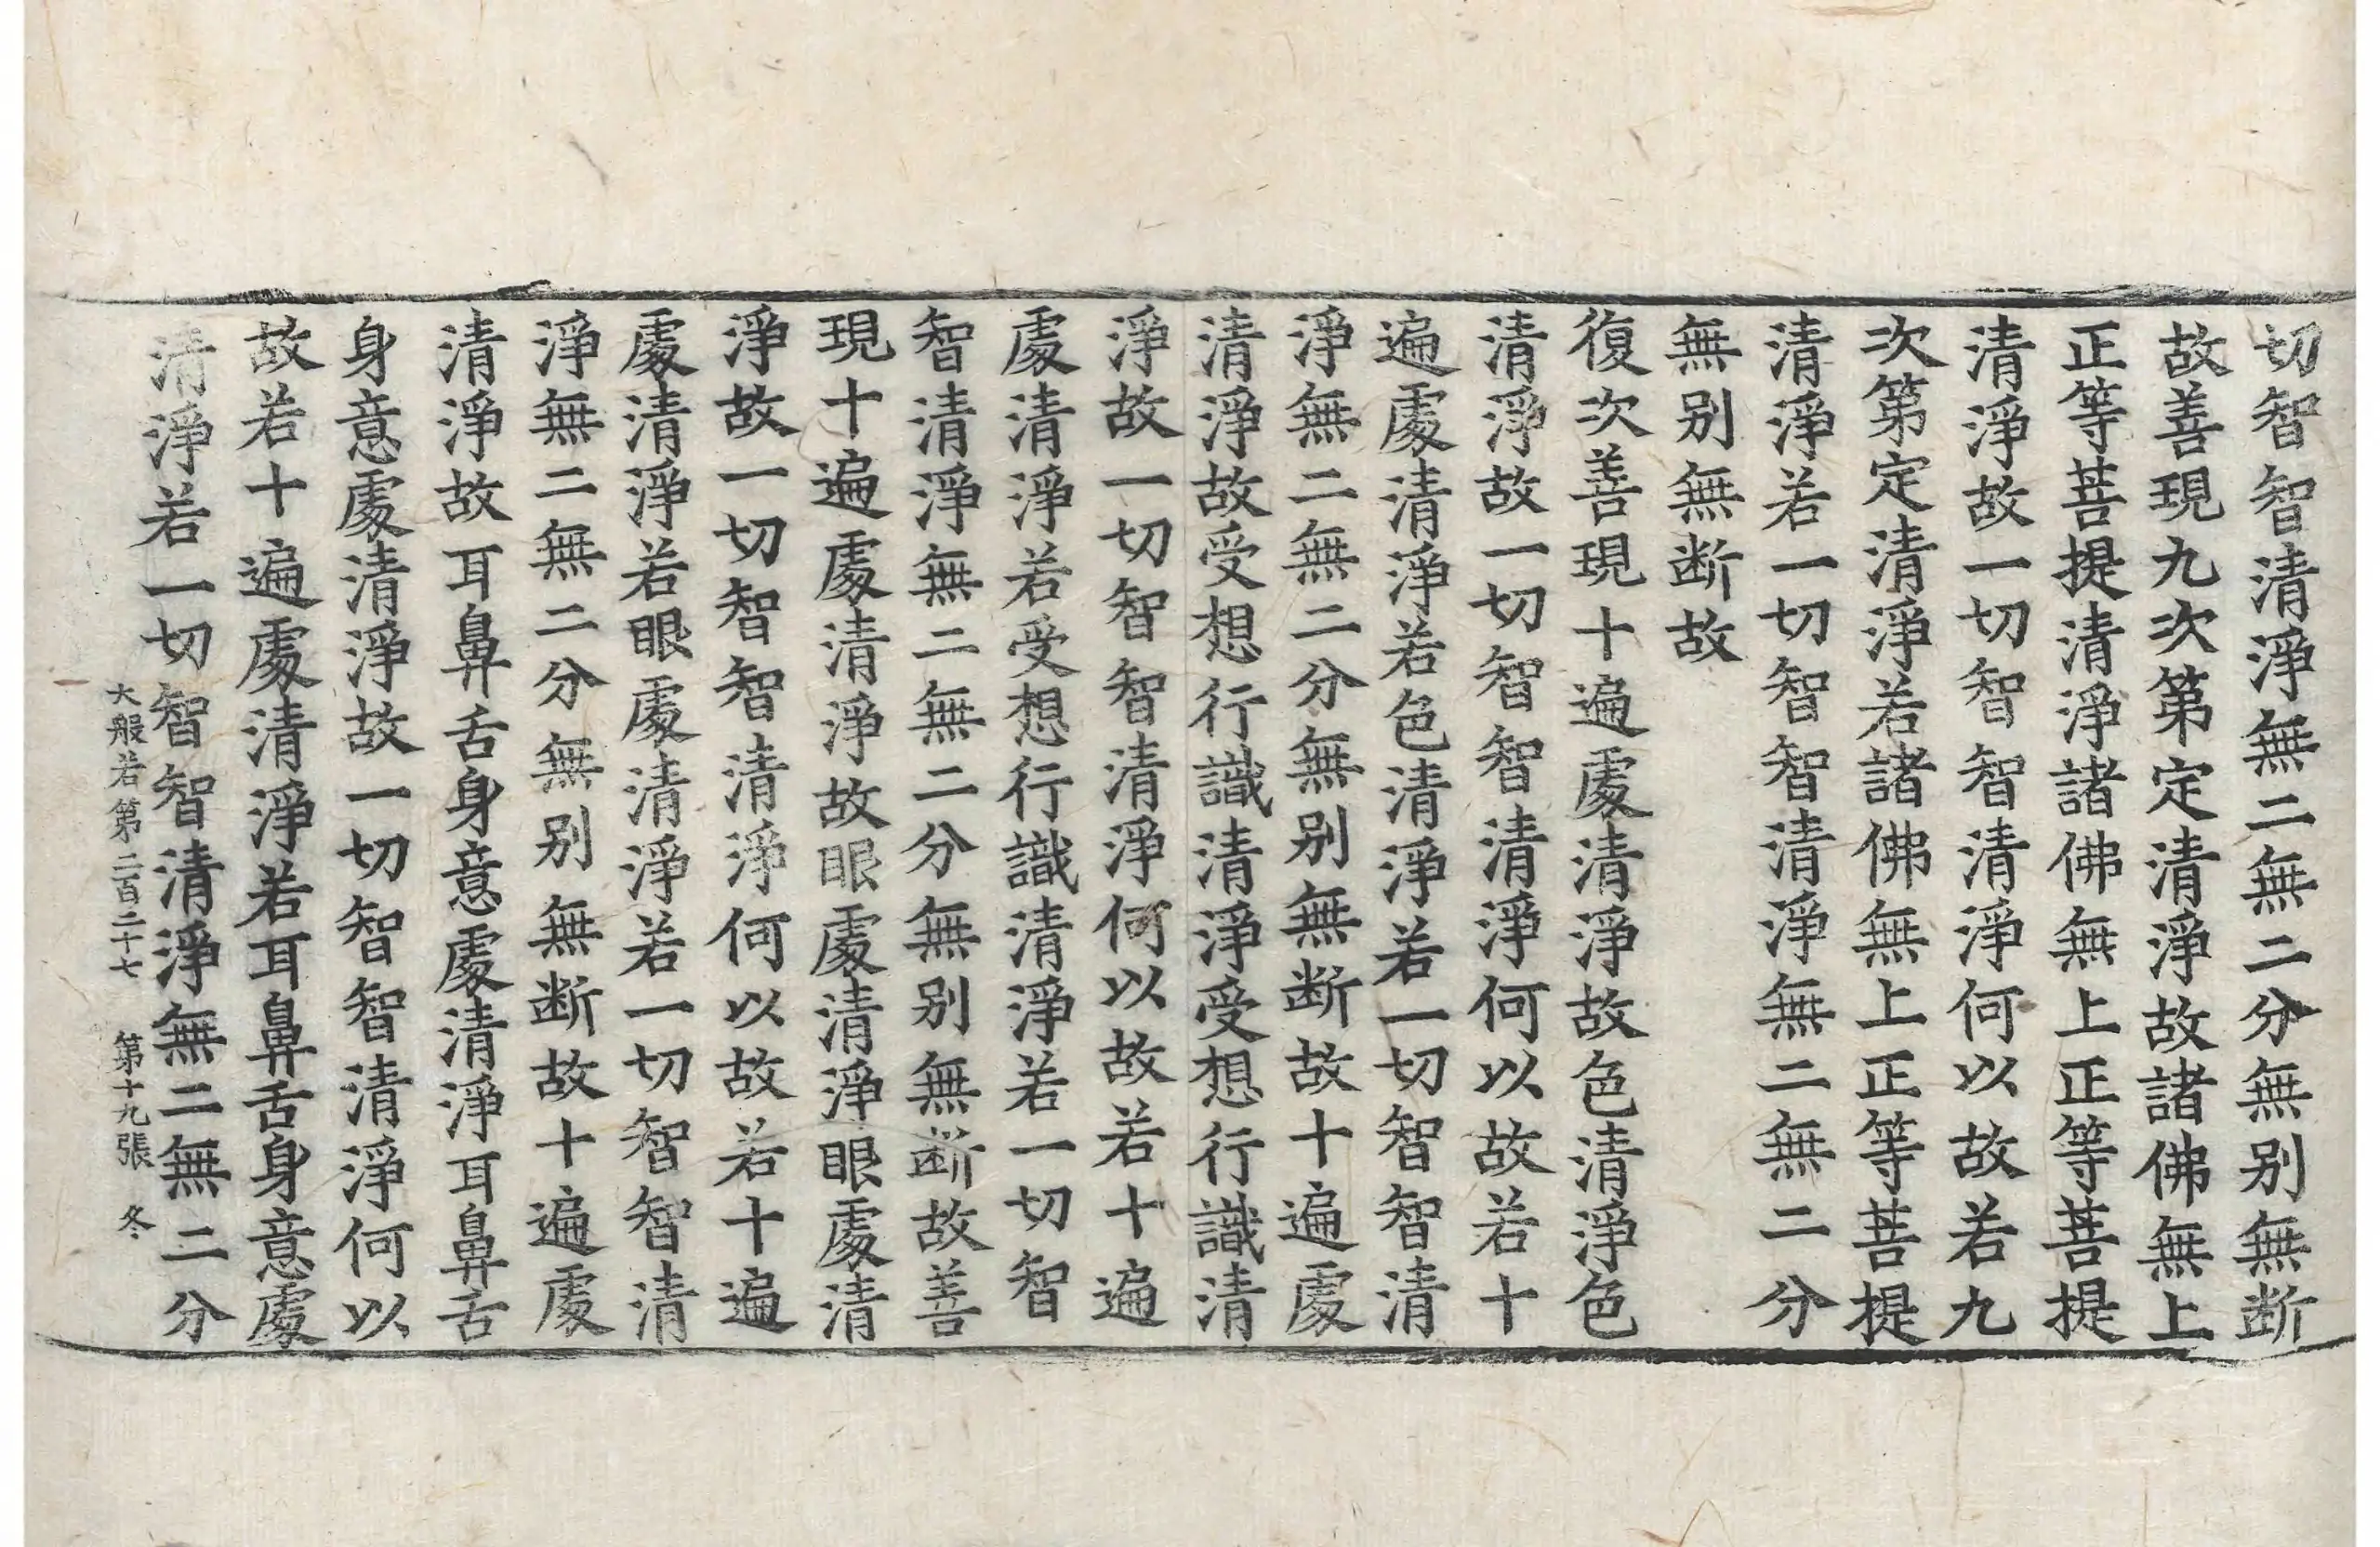 切智智清淨無二無二分無别無断
故善現九次第定清淨故諸佛無上
正等菩提清淨諸佛無上正等菩提
清淨故一切智智清淨何以故若九
次第定清淨若諸佛無上正等菩提
清淨若一切智智清淨無二無二分
無别無断故
復次善現十遍處清淨故色清淨色
清淨故一切智智清淨何以故若十
遍處清淨若色清淨若一切智智清
淨無二無二分無别無断故十遍處
清淨故受想行識清淨受想行識清
淨故一切智智清淨何以故若十遍
處清淨若受想行識清淨若一切智
智清淨無二無二分無别無断故善
現十遍處清淨故眼處清淨眼處清
淨故一切智智清淨何以故若十遍
處清淨若眼處清淨若一切智智清
淨無二無二分無别無断故十遍處
清淨故耳鼻舌身意處清淨耳鼻舌
身意處清淨故一切智智清淨何以
故若十遍處清淨若耳鼻舌身意處
清淨若一切智智清淨無二無二分
大般若第二百二十七 第十九張 冬